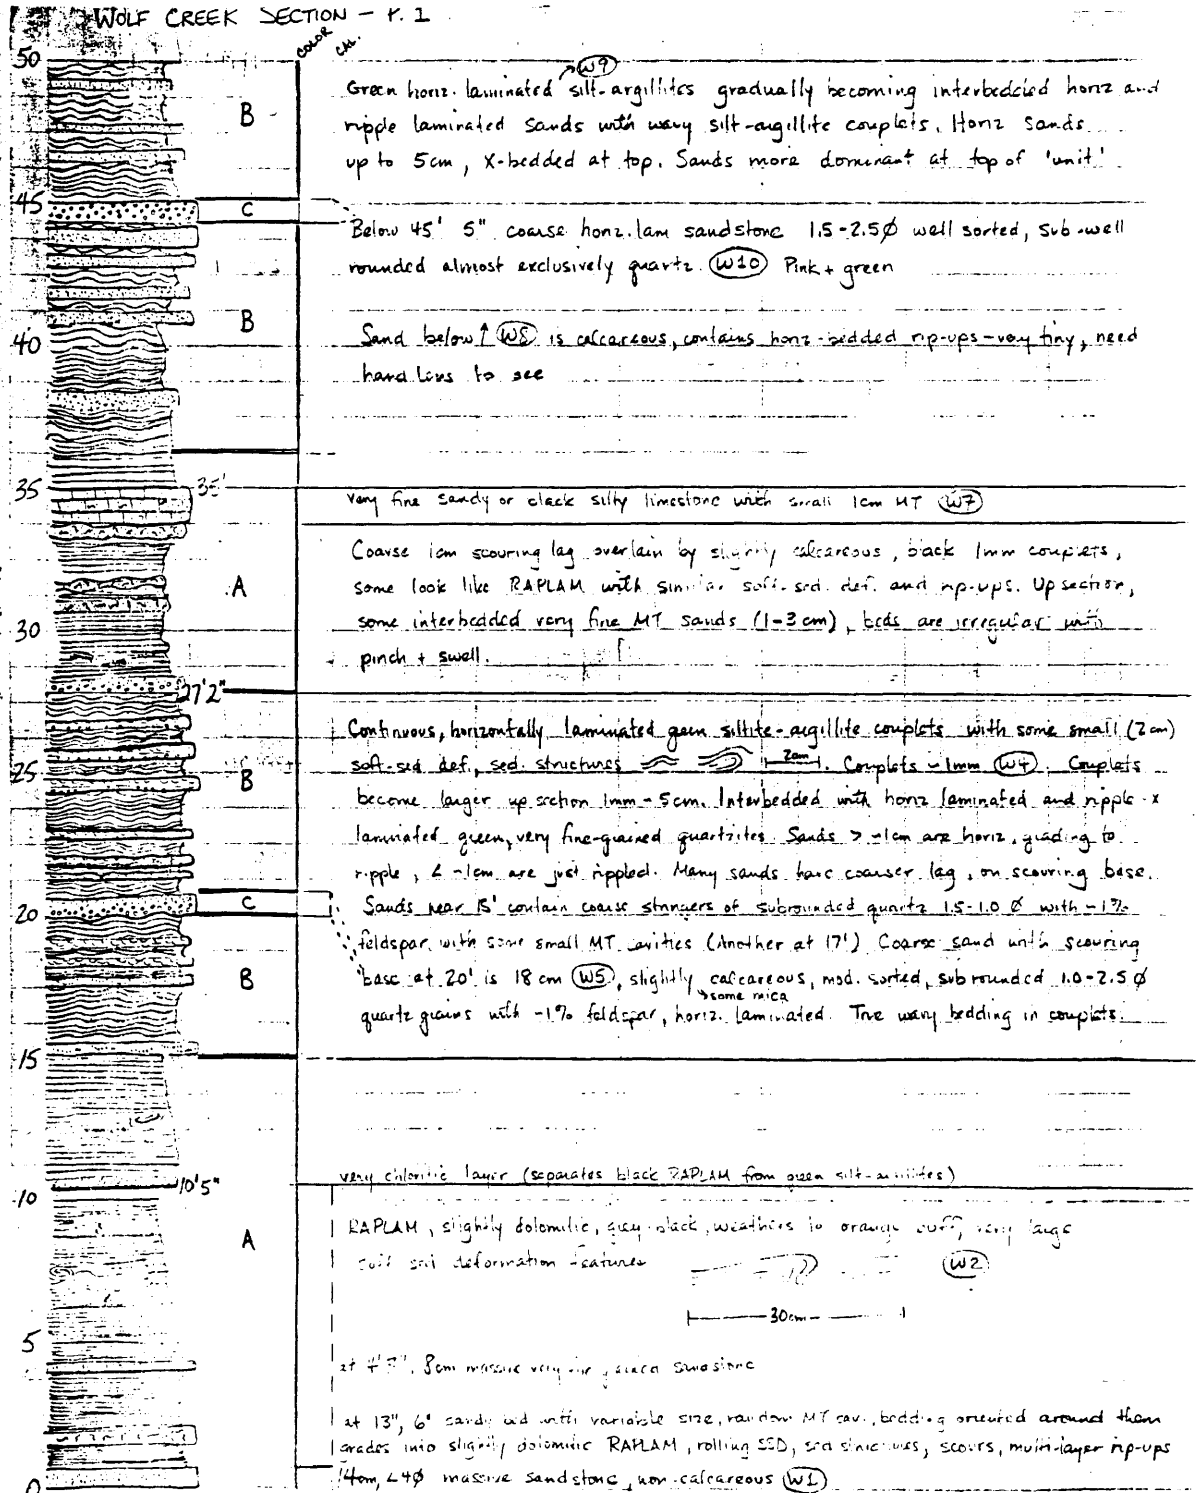 WOLF CREEK SECTION - P. 1
COLOR
CAL.
50
W9
Green horiz. laminated silt-argillites gradually becoming interbedded horiz and
B
ripple laminated sands with wavy silt-argillite couplets. Horiz sands
up to 5cm, X-bedded at top. Sands more dominant at top of 'unit'
45
C
Below 45' 5" coarse horiz. lam sandstone 1.5-2.5Ø well sorted, sub-well
rounded almost exclusively quartz. W10 Pink + green
B
40
Sand below ↑ W8 is calcareous, contains horiz-bedded rip-ups - very tiny, need
hand lens to see
35
35'
very fine sandy or black silty limestone with small 1cm MT W7
Coarse 1cm scouring lag overlain by slightly calcareous, black 1mm couplets,
A
some look like RAPLAM with similar soft-sed. def. and rip-ups. Up section,
30
some interbedded very fine MT sands (1-3 cm), beds are irregular with
pinch + swell.
27'2"
Continuous, horizontally laminated green siltite-argillite couplets with some small (2cm)
25
soft-sed def., sed. structures 2cm. Couplets ~1mm W4. Couplets
B
become larger up section 1mm-5cm. Interbedded with horiz laminated and ripple-x
laminated green, very fine-grained quartzites. Sands > ~1cm are horiz, grading to
ripple, < ~1cm are just rippled. Many sands have coarser lag, on scouring base.
20
C
Sands near 15' contain coarse stringers of subrounded quartz 1.5-1.0 Ø with ~1%
feldspar, with some small MT cavities (Another at 17') Coarse sand with scouring
B
base at 20' is 18 cm W5, slightly calcareous, mod. sorted, subrounded 1.0-2.5 Ø
some mica
quartz grains with ~1% feldspar, horiz. laminated. True wavy bedding in couplets.
15
very chloritic layer (separates black RAPLAM from green silt-argillites)
10'5"
10
A
RAPLAM, slightly dolomitic, grey-black, weathers to orange buff, very large
soft sed deformation features W2
30cm
5
at 4'7", 8cm massive very fine grained sandstone
at 13", 6" sandy bed with variable size, random MT cav., bedding oriented around them
grades into slightly dolomitic RAPLAM, rolling SSD, sed structures, scours, multi-layer rip-ups
14cm, <4Ø massive sandstone, non-calcareous W1
0